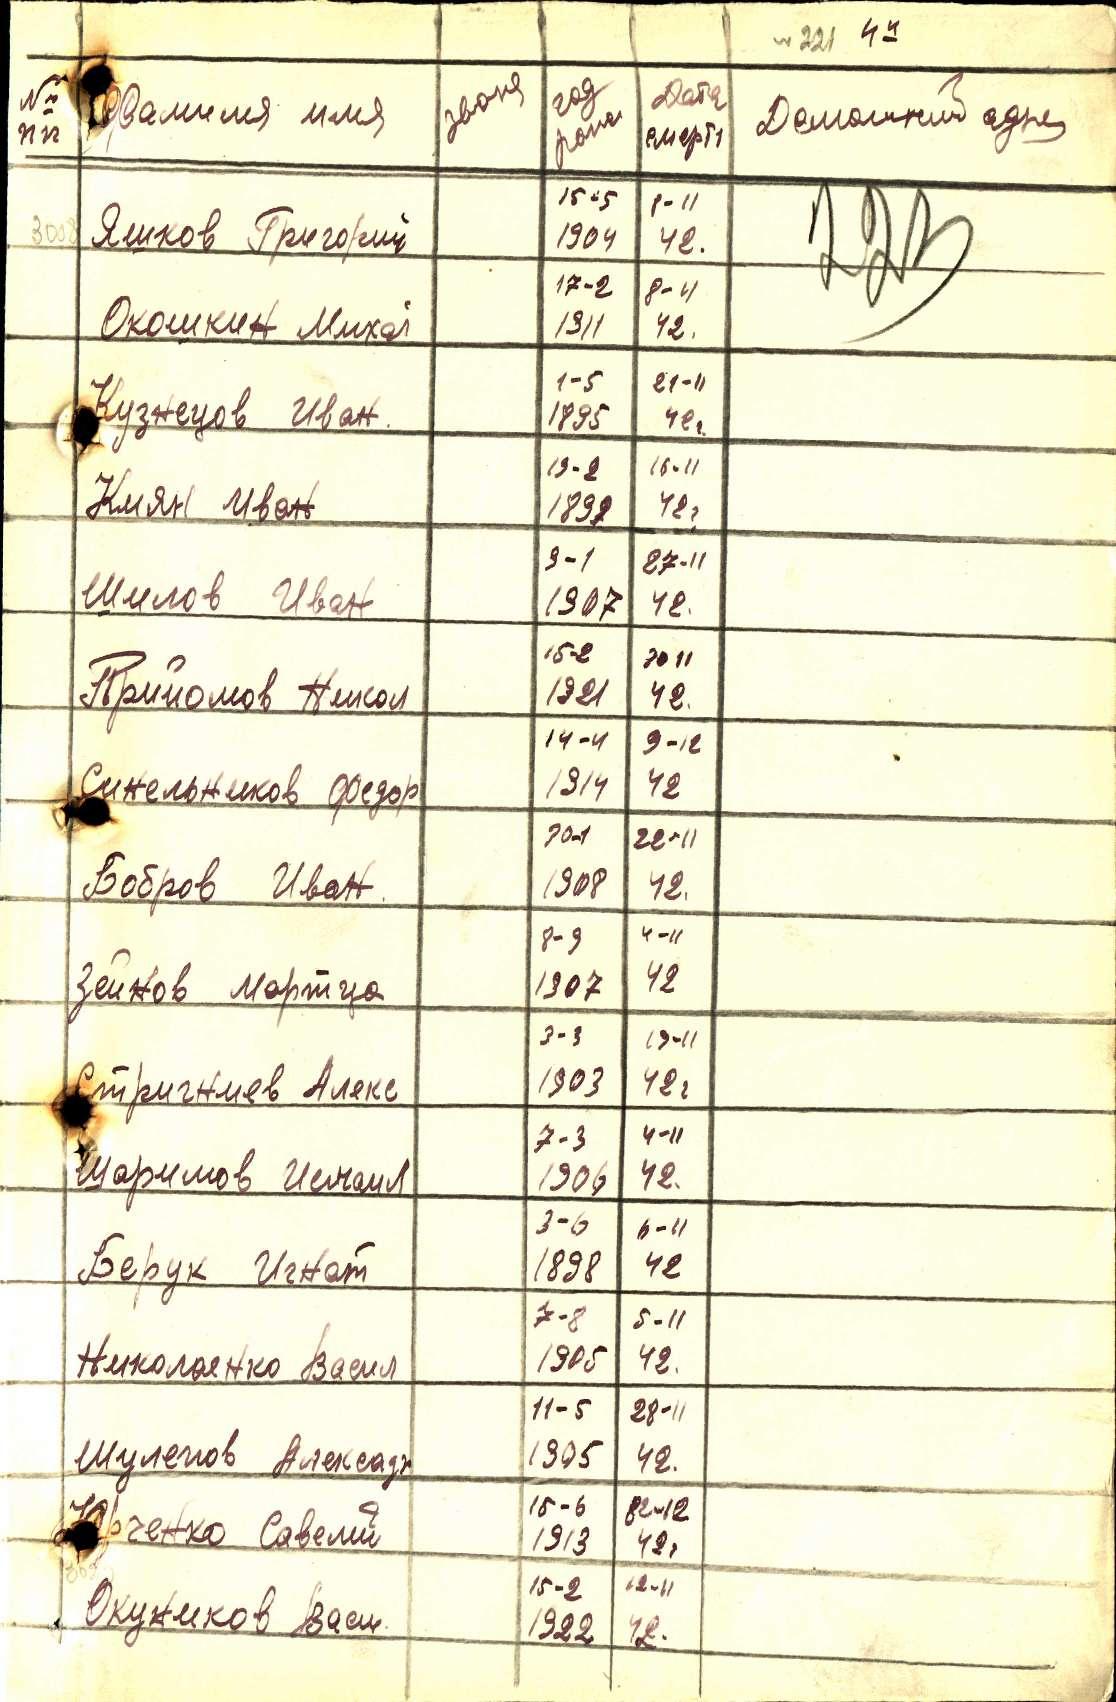 221 4
№№ Фамилия имя звания год рожд Дата смерти Домашний адрес
пп
15-5 8-11
3008 Яшков Григорий 1904 42.
223
17-2 8-11
Окошкин Михаи 1911 42.
1-5 21-11
Кузнецов Иван. 1895 42г
19-2 16-11
Кмян Иван 1892 42г
9-1 27-11
Шилов Иван 1907 42.
15-2 30 11
Прийомов Никол 1921 42.
14-4 9-12
Синельников Федор 1914 42
30-1 22-11
Бобров Иван. 1908 42.
8-9 4-11
Зейнов Мартца 1907 42
3-3 19-11
Стригниев Алекс 1903 42г
7-3 4-11
Шарипов Исмаил 1906 42.
3-6 6-11
Берук Игнат 1898 42
7-8 5-11
Николаенко Васил 1905 42.
11-5 28-11
Шулепов Александ 1905 42.
15-6
Юрченко Савелий 1913 42г
15-2 12-11
Окуников Васи. 1922 42.